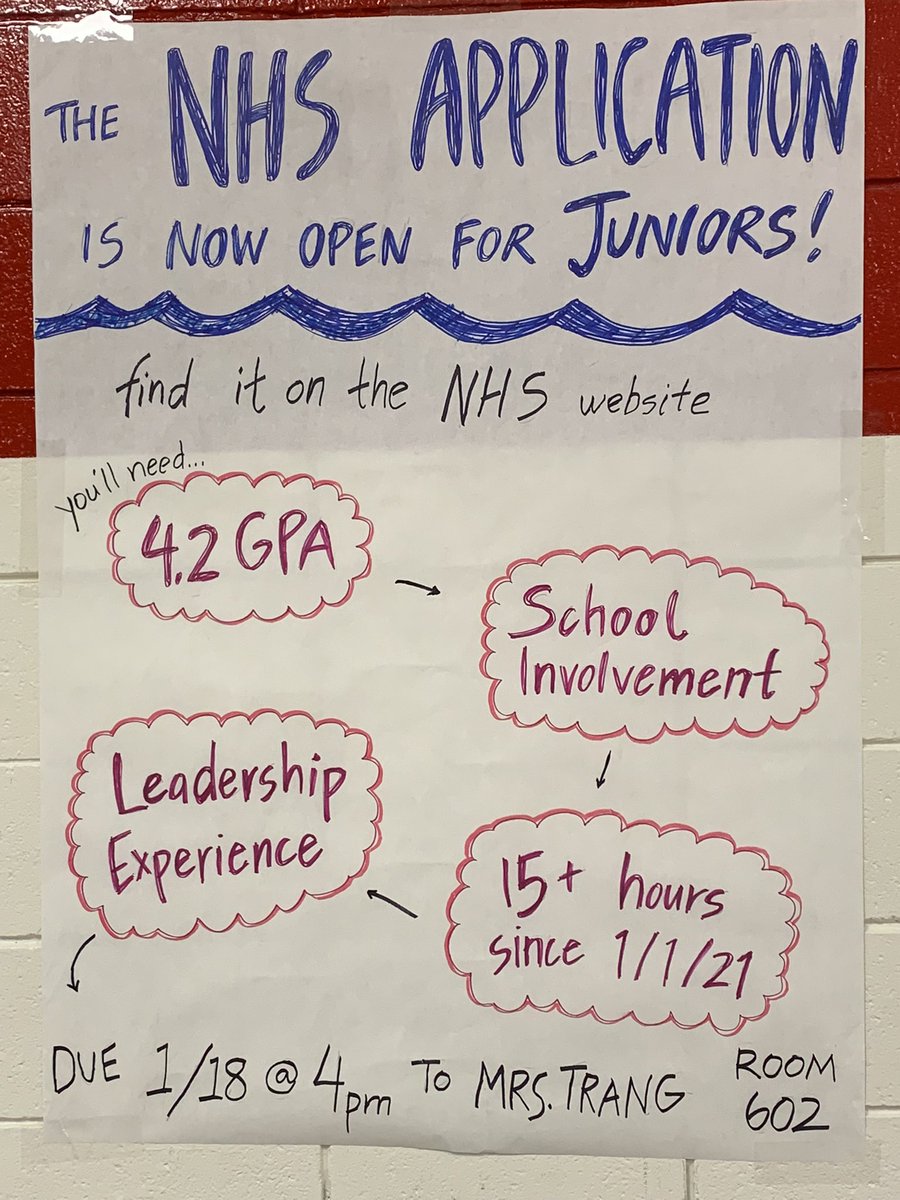 THE NHS APPLICATION
IS NOW OPEN FOR JUNIORS!
find it on the NHS website
you'll need...
4.2 GPA
School
Involvement
15+ hours
since 1/1/21
Leadership
Experience
DUE 1/18 @ 4pm TO MRS. TRANG ROOM
602